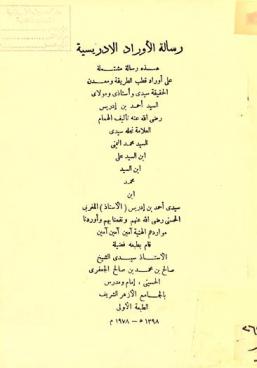 رسالة الأوراد الادريسية
هذه رسالة مشتملة
على أوراد قطب الطريقة ومعدن
الحقيقة سيدى وأستاذى ومولاى
السيد أحمد بن إدريس
رضى الله عنه تأليف الهمام
العلامة نجله سيدى
السيد محمد
ابن السيد على
ابن السيد
محمد
ابن
سيدى أحمد بن إدريس (الأستاذ) المغربى
الحسنى رضى الله عنهم ونفعنا بهم وأوردنا
مواردهم الهنية آمين آمين آمين
قام بطبعه فضيلة
الأستاذ سيدى الشيخ
صالح بن محمد بن صالح الجعفرى
الحسينى ، إمام ومدرس
بالجامع الأزهر الشريف
الطبعة الأولى
١٣٩٨ ه - ١٩٧٨ م